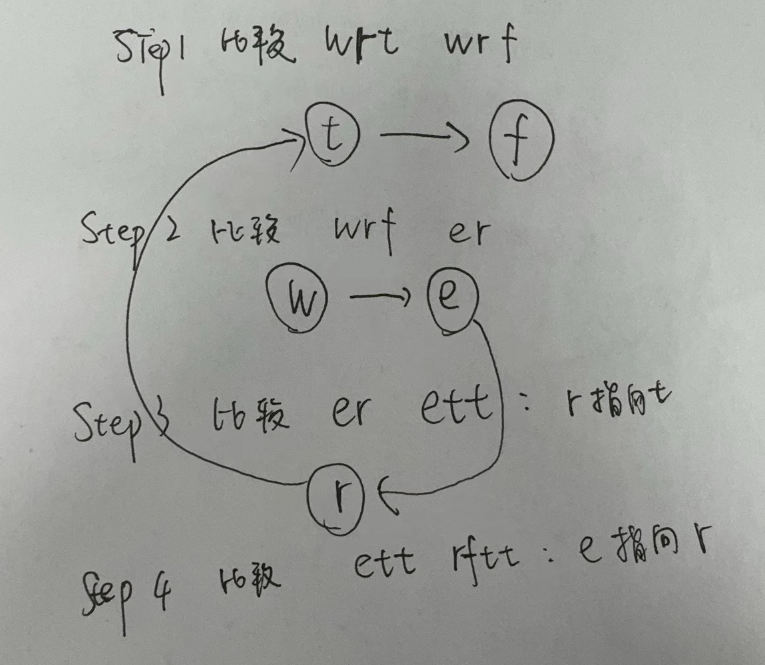 Step1 比较 wrt wrf
t f
Step 2 比较 wrf er
w e
Step 3 比较 er ett : r指向t
r
Step 4 比较 ett rftt : e指向r